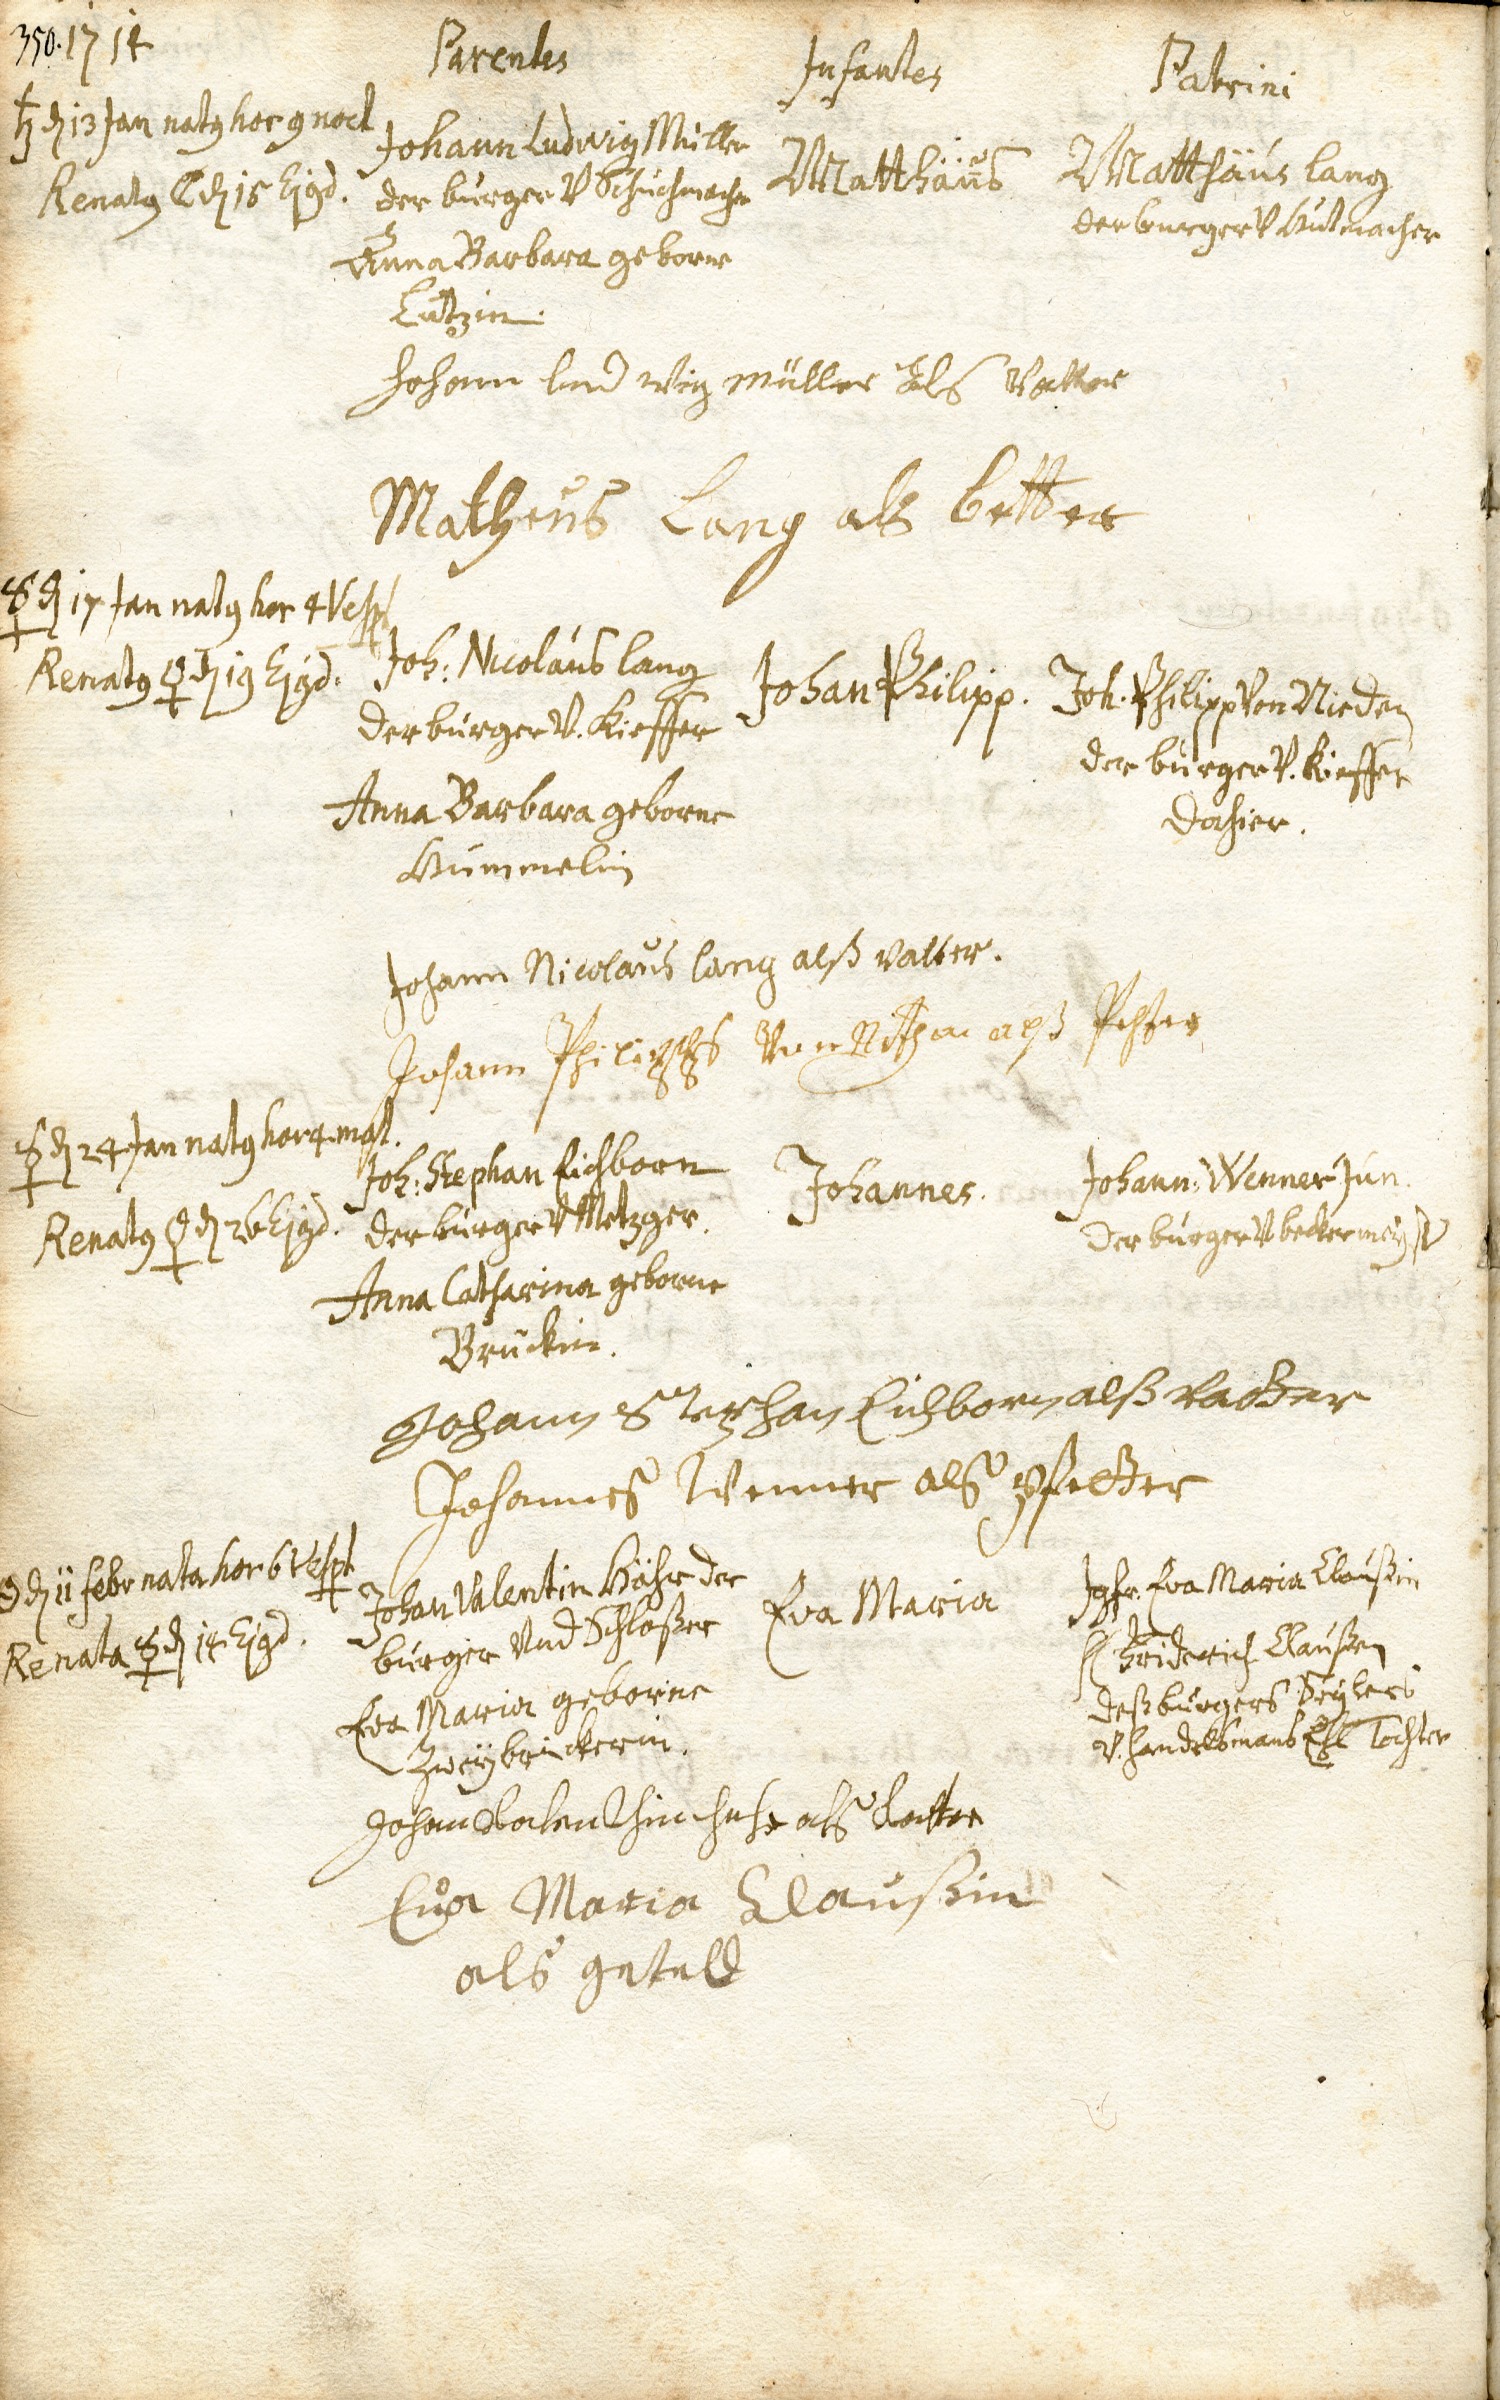 350. 1714
Parentes
Infantes
Patrini
♄ d 13 Jan natg hor 9 noct
Renatg ☾ d 15 Ejgd.
Johann Ludwig Müller
der burger V Schuchmacher
Anna Barbara geborne
Lutzin.
Matthäus
Matthäus Lang
der burger V Hutmacher
Johann lud wig müller als Vatter
Matheus Lang als better
☿ d 17 Jan natg hor 4 Vesp
Renatg ♀ d 19 Ejgd.
Joh: Nicolaus Lang
der burger V. Kieffer
Anna Barbara geborne
Hummelin
Johan Philipp.
Joh. Philipp Von Nieden
der burger V. Kieffer
dahier.
Johann Nicolaus lang alß vatter.
Johann Philipps Von alß Pfetter
☿ d 24 Jan natg hor 4 mat.
Renatg ♀ d 26 Ejgd.
Joh: Stephan Eichborn
der burger V Metzger.
Anna Catharina geborne
Brückin.
Johannes.
Johann: Wenner Jun.
der burger V becker
Johann Stephan Eichborn alß vatter
Johannes Wenner als pfetter
d 11 febr nata hor 6 Vespt
Renata ☿ d 14 Ejgd.
Johan Valentin Höhr der
burger Und Schloßer
Eva Maria geborne
Zweybrückerin.
Eva Maria
Jgfr. Eva Maria Claußin
H Friderich Claußen
deß burgers Seylers
V. handelsmans Ehl Tochter
Johan als Vatter
Eva Maria Claußin
als